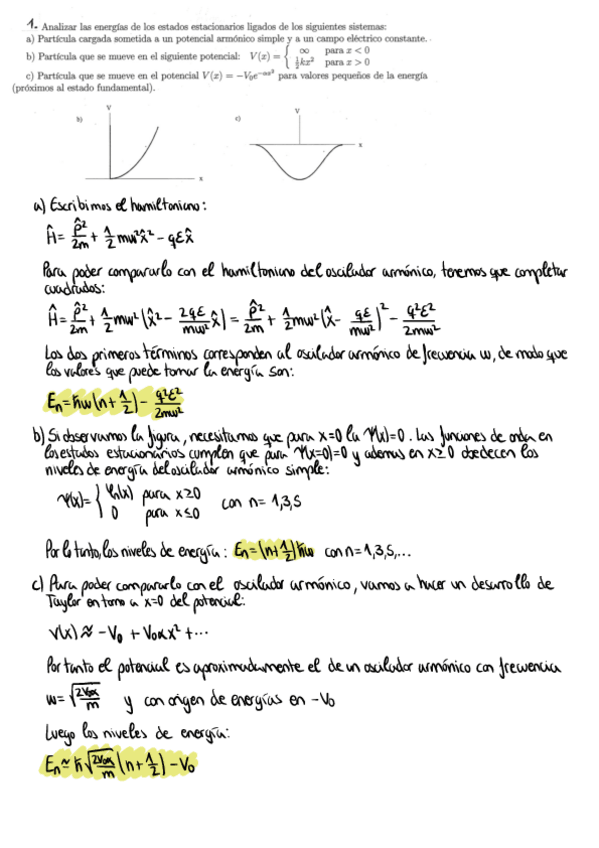 1. Analizar las energías de los estados estacionarios ligados de los siguientes sistemas:
a) Partícula cargada sometida a un potencial armónico simple y a un campo eléctrico constante.
b) Partícula que se mueve en el siguiente potencial: V(x) = { ∞ para x < 0
½kx² para x > 0
c) Partícula que se mueve en el potencial V(x) = −V₀e^(−αx²) para valores pequeños de la energía
(próximos al estado fundamental).
b) V x
c) V x
a) Escribimos el hamiltoniano:
Ĥ = p̂²/2m + 1/2 mω²x̂² − qεx̂
Para poder compararlo con el hamiltoniano del oscilador armónico, tenemos que completar
cuadrados:
Ĥ = p̂²/2m + 1/2 mω² (x̂² − 2qε/mω² x̂) = p̂²/2m + 1/2 mω² (x̂ − qε/mω²)² − q²ε²/2mω²
Los dos primeros términos corresponden al oscilador armónico de frecuencia ω, de modo que
los valores que puede tomar la energía son:
Eₙ = ħω(n + 1/2) − q²ε²/2mω²
b) Si observamos la figura, necesitamos que para x=0 la Ψ(x)=0. Las funciones de onda en
los estados estacionarios cumplen que para Ψ(x=0)=0 y además en x≥0 obedecen los
niveles de energía del oscilador armónico simple:
Ψ(x) = { Ψₙ(x) para x≥0
0 para x≤0
con n = 1,3,5
Por lo tanto, los niveles de energía: Eₙ = (n + 1/2)ħω con n=1,3,5,...
c) Para poder compararlo con el oscilador armónico, vamos a hacer un desarrollo de
Taylor en torno a x=0 del potencial:
V(x) ≈ −V₀ + V₀αx² + ···
Por tanto el potencial es aproximadamente el de un oscilador armónico con frecuencia
ω = √(2V₀α/m) y con origen de energías en −V₀
Luego los niveles de energía:
Eₙ ≃ ħ√(2V₀α/m) (n + 1/2) − V₀